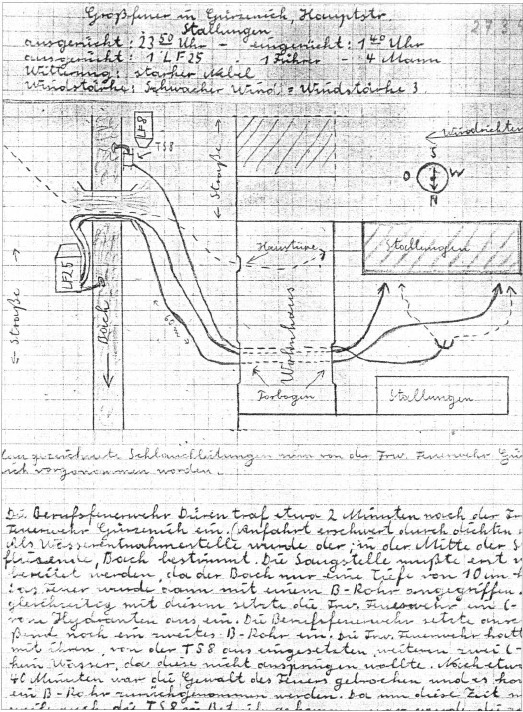 Großfeuer in Gürzenich, Hauptstr.
Stallungen
27.3.
ausgerückt: 23 50 Uhr - eingerückt: 1 40 Uhr
ausgerückt: 1 LF 25 - 1 Führer - 4 Mann
Witterung: starker Nebel
Windstärke: Schwacher Wind = Windstärke 3
LF8
TS8
← Straße →
Windrichten
S
O W
N
Haustüre
Stallungen
LF25
← Straße →
Bach
Wohnhaus
Torbogen
Stallungen
gezeichnete Schlauchleitungen von der Frw. Feuerwehr Gü
ich vorgenommen worden.
Die Berufsfeuerwehr Düren traf etwa 2 Minuten nach der Fr
Feuerwehr Gürzenich ein. (Anfahrt erschwert durch dichten
Als Wasserentnahmestelle wurde der, in der Mitte der S
fliesende, Bach bestimmt. Die Saugstelle mußte erst v
bereitet werden, da der Bach nur eine Tiefe von 10 cm h
Feuer wurde dann mit einem B-Rohr angegriffen.
gleichzeitig mit diesem setzte die Frw. Feuerwehr ein C-
Hydranten aus ein. Die Berufsfeuerwehr setzte
ßend noch ein zweites B-Rohr ein. Die Frw. Feuerwehr hatt
mit ihren, von der TS8 aus eingesetzten, weitern zwei C-
kein Wasser, da diese nicht anspringen wollte. Nach etwa
40 Minuten war die Gewalt des Feuers gebrochen und es kon
ein B-Rohr zurückgenommen werden. Da um diese Zeit
die TS8